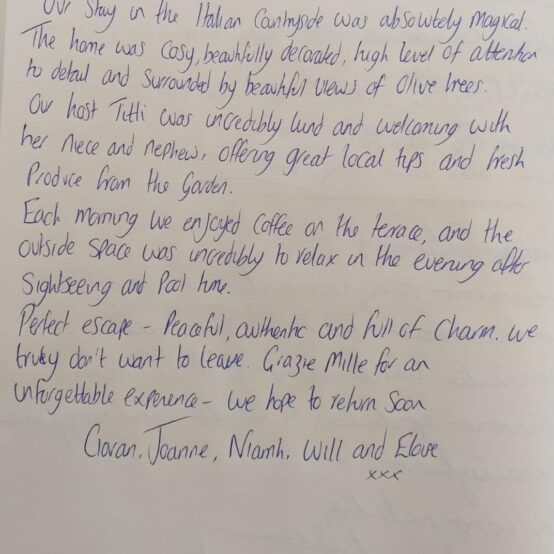 Our stay in the Italian Countryside was absolutely magical.
The home was cosy, beautifully decorated, high level of attention
to detail and surrounded by beautiful views of Olive trees.
Our host Titti was incredibly kind and welcoming with
her niece and nephew, offering great local tips and fresh
Produce from the Garden.
Each morning we enjoyed Coffee on the terrace, and the
outside space was incredibly to relax in the evening after
Sightseeing and Pool time.
Perfect escape - Peaceful, authentic and full of Charm. we
truly don't want to leave. Grazie Mille for an
unforgettable experience - we hope to return soon
Joanne, Niamh, Will and
xxx